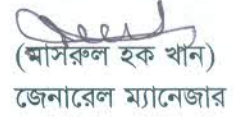 (মাসরুল হক খান)
জেনারেল ম্যানেজার